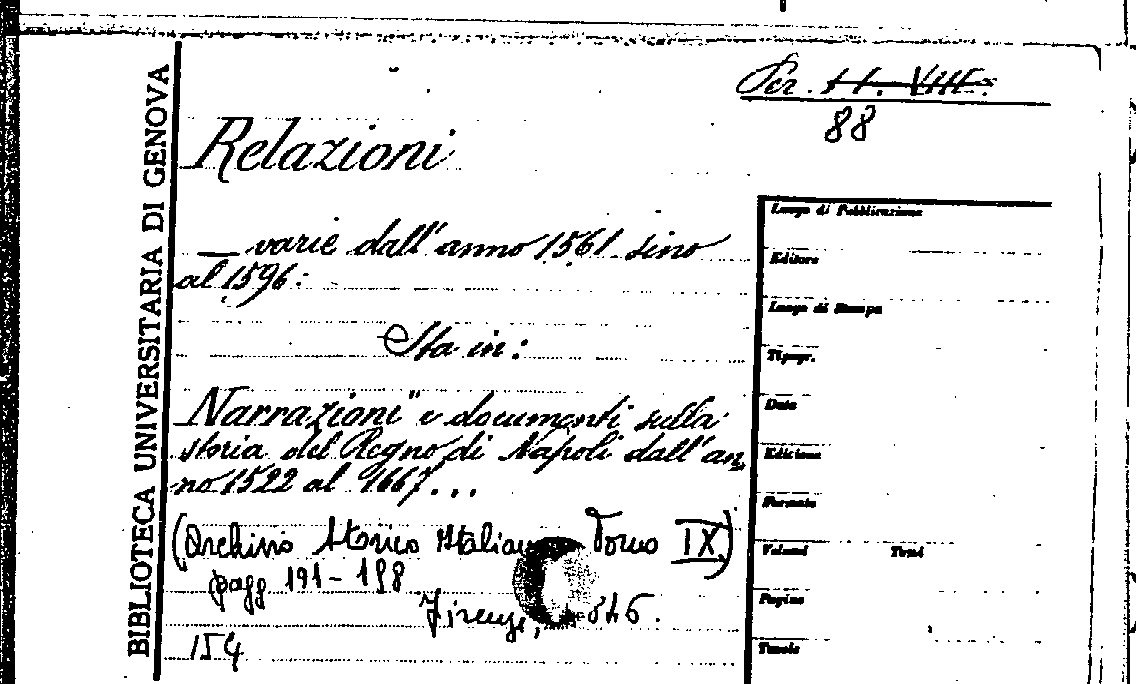 Per. 11. VIII.
88
BIBLIOTECA UNIVERSITARIA DI GENOVA
Relazioni
— varie dall'anno 1561 sino
al 1596:
Sta in:
Narrazioni" e documenti sulla
storia del Regno di Napoli dall'an
no 1522 al 1667...
(Archivio Storico Italiano Tomo IX)
pagg 191-
Firenze,
154
Luogo di Pubblicazione
Editore
Luogo di Stampa
Tipogr.
Data
Edizione
Formato
Volumi Tomi
Pagine
Tavole